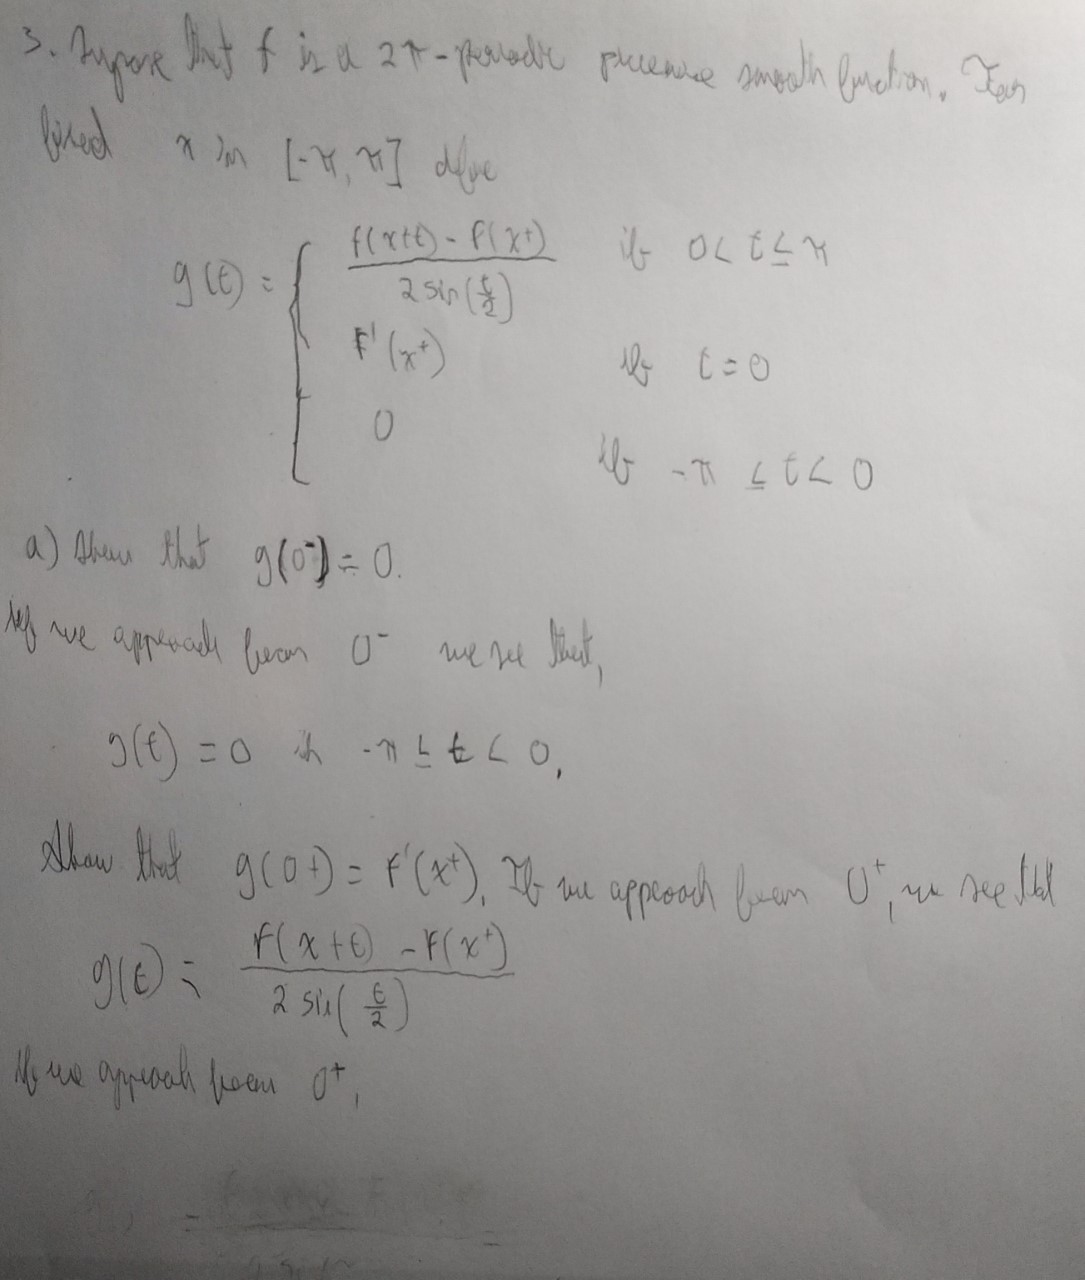 3. Suppose that f is a 2π-periodic piecewise smooth function. For
fixed x in [-π, π] define
g(t) = { f(x+t) - f(x+) / 2 sin(t/2) if 0 < t ≤ π
f'(x+) if t = 0
0 if -π ≤ t < 0
a) Show that g(0-) = 0.
If we approach from 0- we see that,
g(t) = 0 if -π ≤ t < 0,
Show that g(0+) = f'(x+). If we approach from 0+, we see that
g(t) = f(x+t) - f(x+) / 2 sin(t/2)
If we approach from 0+,